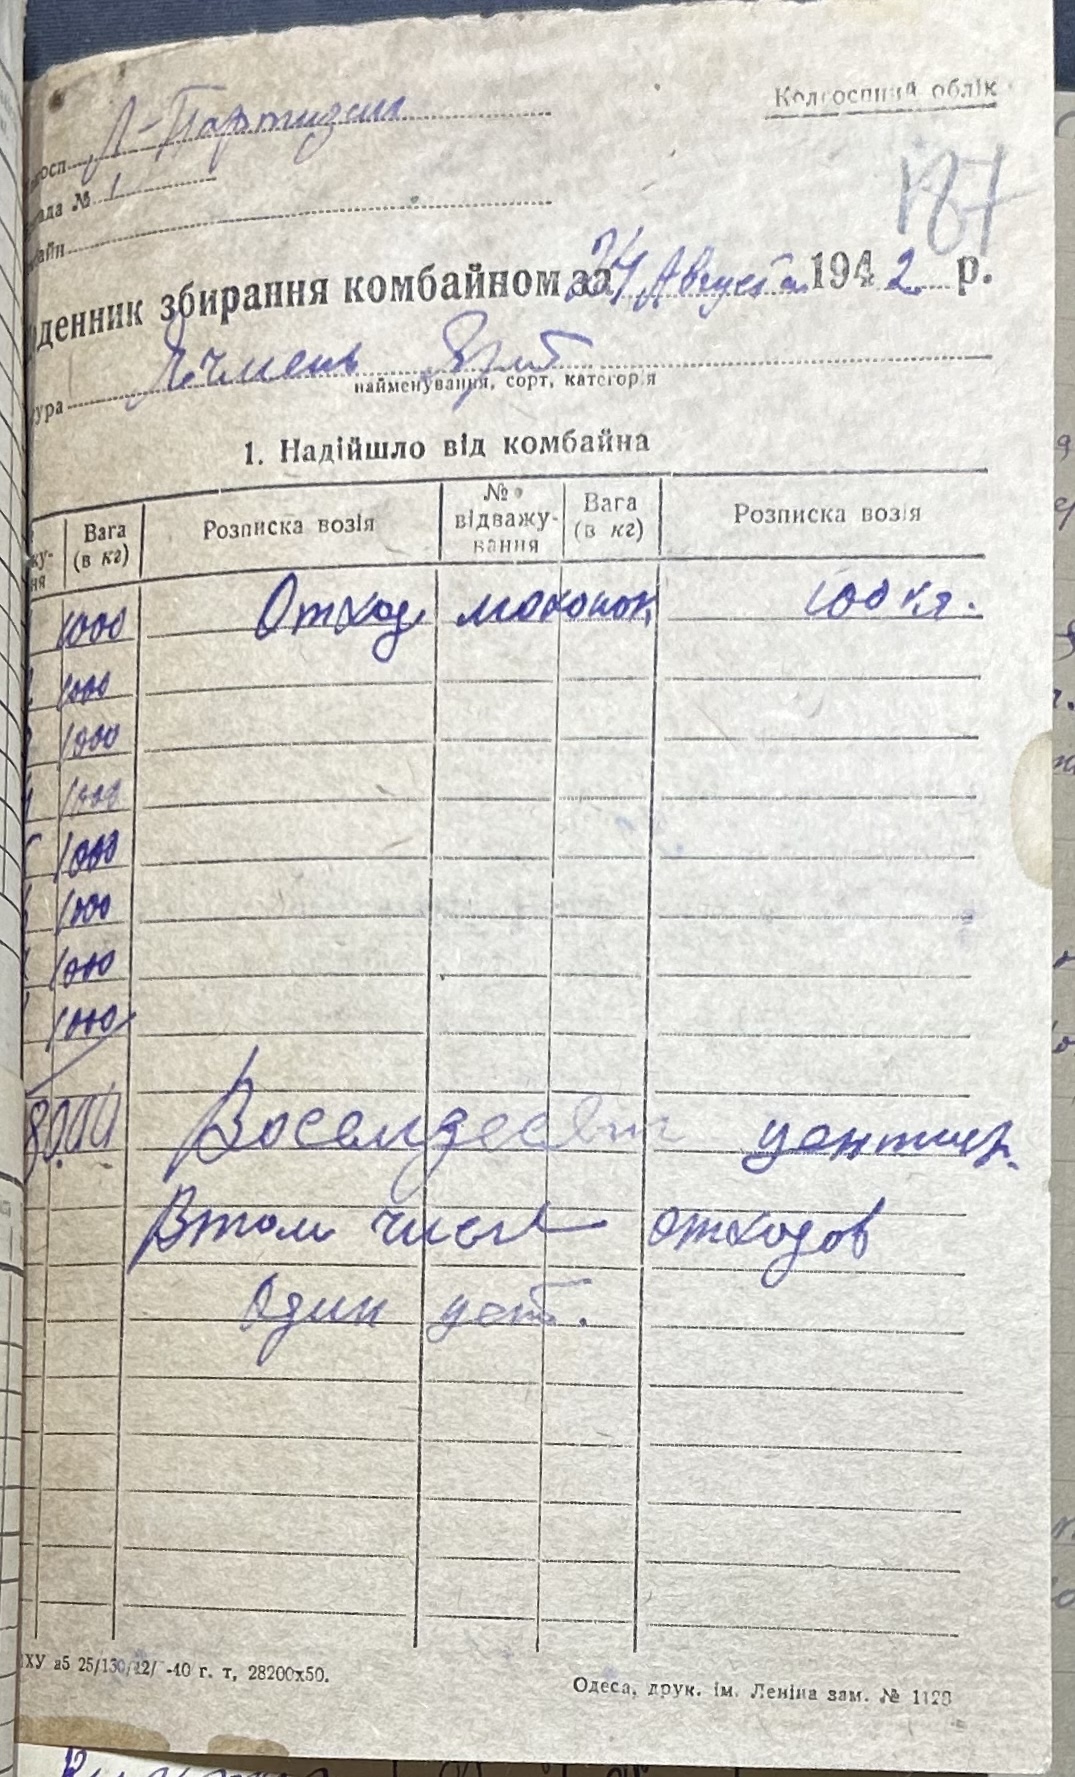 Колгоспний облік
госп Л-Партизан
ада № 1
байн
187
денник збирання комбайном за 24 Августа 1942 р.
ура Ячмень
найменування, сорт, категорія
1. Надійшло від комбайна
ку-ня Вага (в кг) Розписка возія № відважу-вання Вага (в кг) Розписка возія
1000 Отход 100 кл.
1000
1000
4 1000
5 1000
1000
1000
1000
8000 Воселдесят центнер.
Втом числе отходов
Один цент.
ХУ а5 25/130/12/ -40 г. т, 28200х50.
Одеса, друк. ім. Леніна зам. № 1128